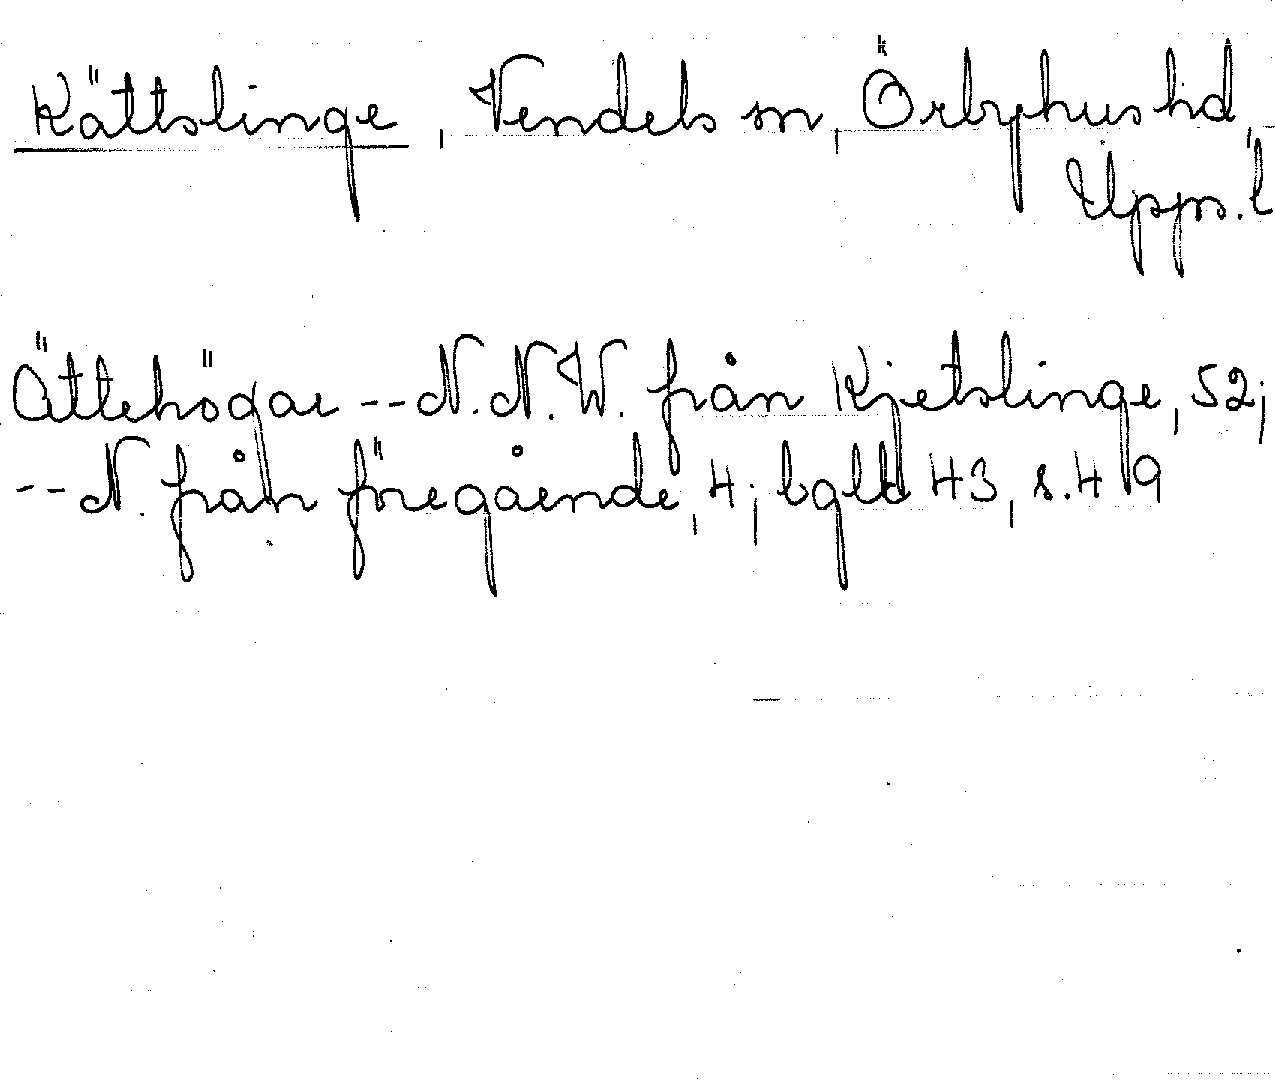 Kättslinge, Vendels sn, Örbyhus hd,
Upps. l
Ättehögar -- N. N. W. från Kjetslinge, 52;
-- N. från föregående, 4; bgld 43, s. 49